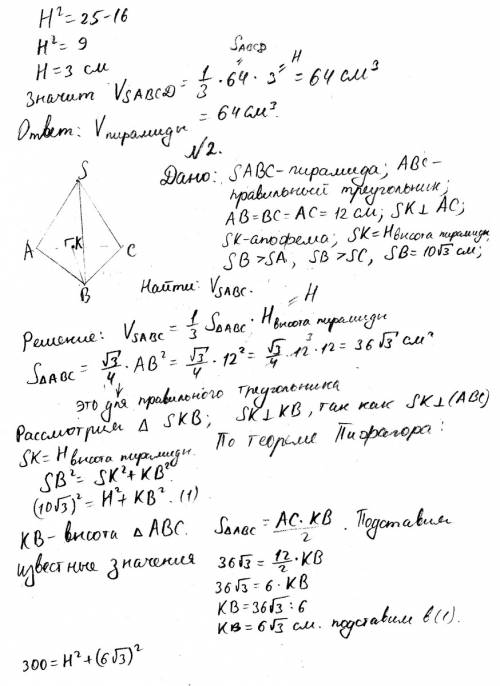 H² = 25-16
H² = 9
H = 3 см
Значит V_SABCD = 1/3 · 64 · 3 = 64 см³
S_ABCD
H
Ответ: V_пирамиды = 64 см³.
№2.
Дано: SABC-пирамида; ABC-
правильный треугольник;
AB=BC=AC=12 см; SK⊥AC;
SK-апофема; SK=H высота пирамиды
SB>SA, SB>SC, SB=10√3 см;
S
A
K
C
B
Найти: V_SABC.
Решение: V_SABC = 1/3 S_ΔABC · H высота пирамиды
= H
S_ΔABC = √3/4 · AB² = √3/4 · 12² = √3/4 · 12 · 12 = 36√3 см²
3
это для правильного треугольника
Рассмотрим Δ SKB; SK⊥KB, так как SK⊥(ABC)
SK=H высота пирамиды. По теореме Пифагора:
SB² = SK² + KB²
(10√3)² = H² + KB². (1)
KB-высота ΔABC. S_ΔABC = AC·KB/2. Подставим
известные значения
36√3 = 12/2 · KB
36√3 = 6 · KB
KB = 36√3 : 6
KB = 6√3 см. подставим в (1).
300 = H² + (6√3)²